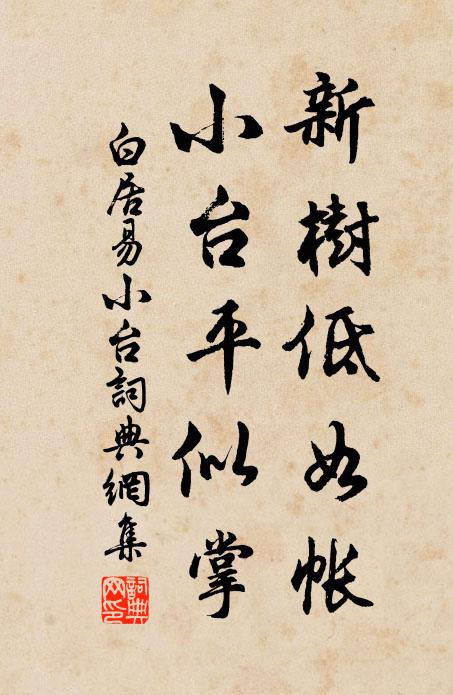 新樹低如帳
小台平似掌
白居易小台詞典網集
詞典
网印